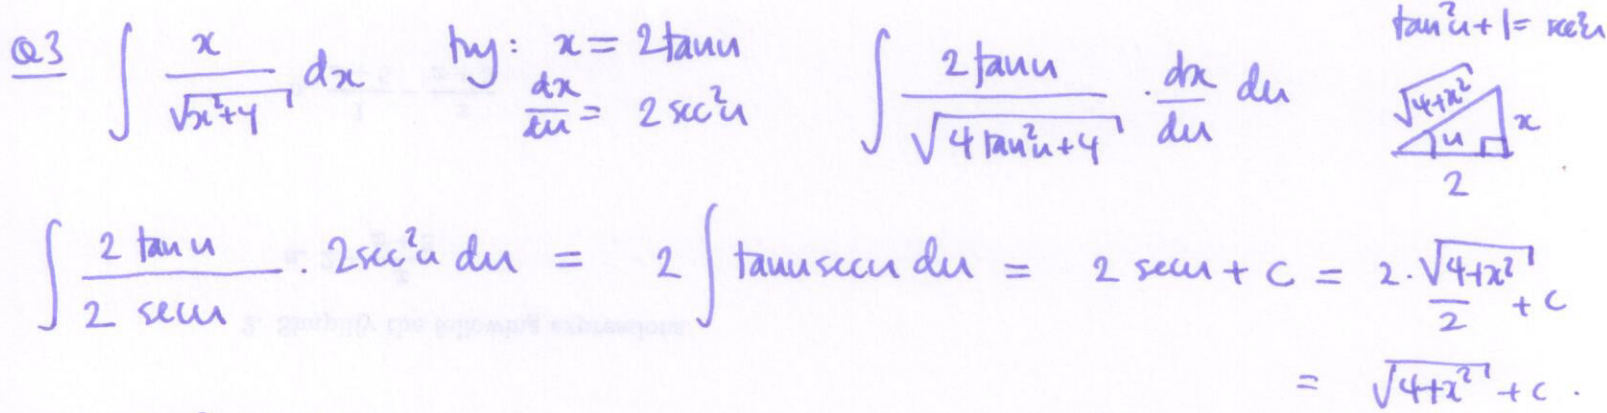 Q3 ∫ x/√(x²+4) dx try: x = 2tanu ∫ 2tanu/√(4tan²u+4) · dx/du du tan²u+1 = sec²u
dx/du = 2sec²u √(4+x²) x u 2
∫ 2tanu/2secu · 2sec²u du = 2 ∫ tanu secu du = 2secu + c = 2·√(4+x²)/2 + c
= √(4+x²) + c.